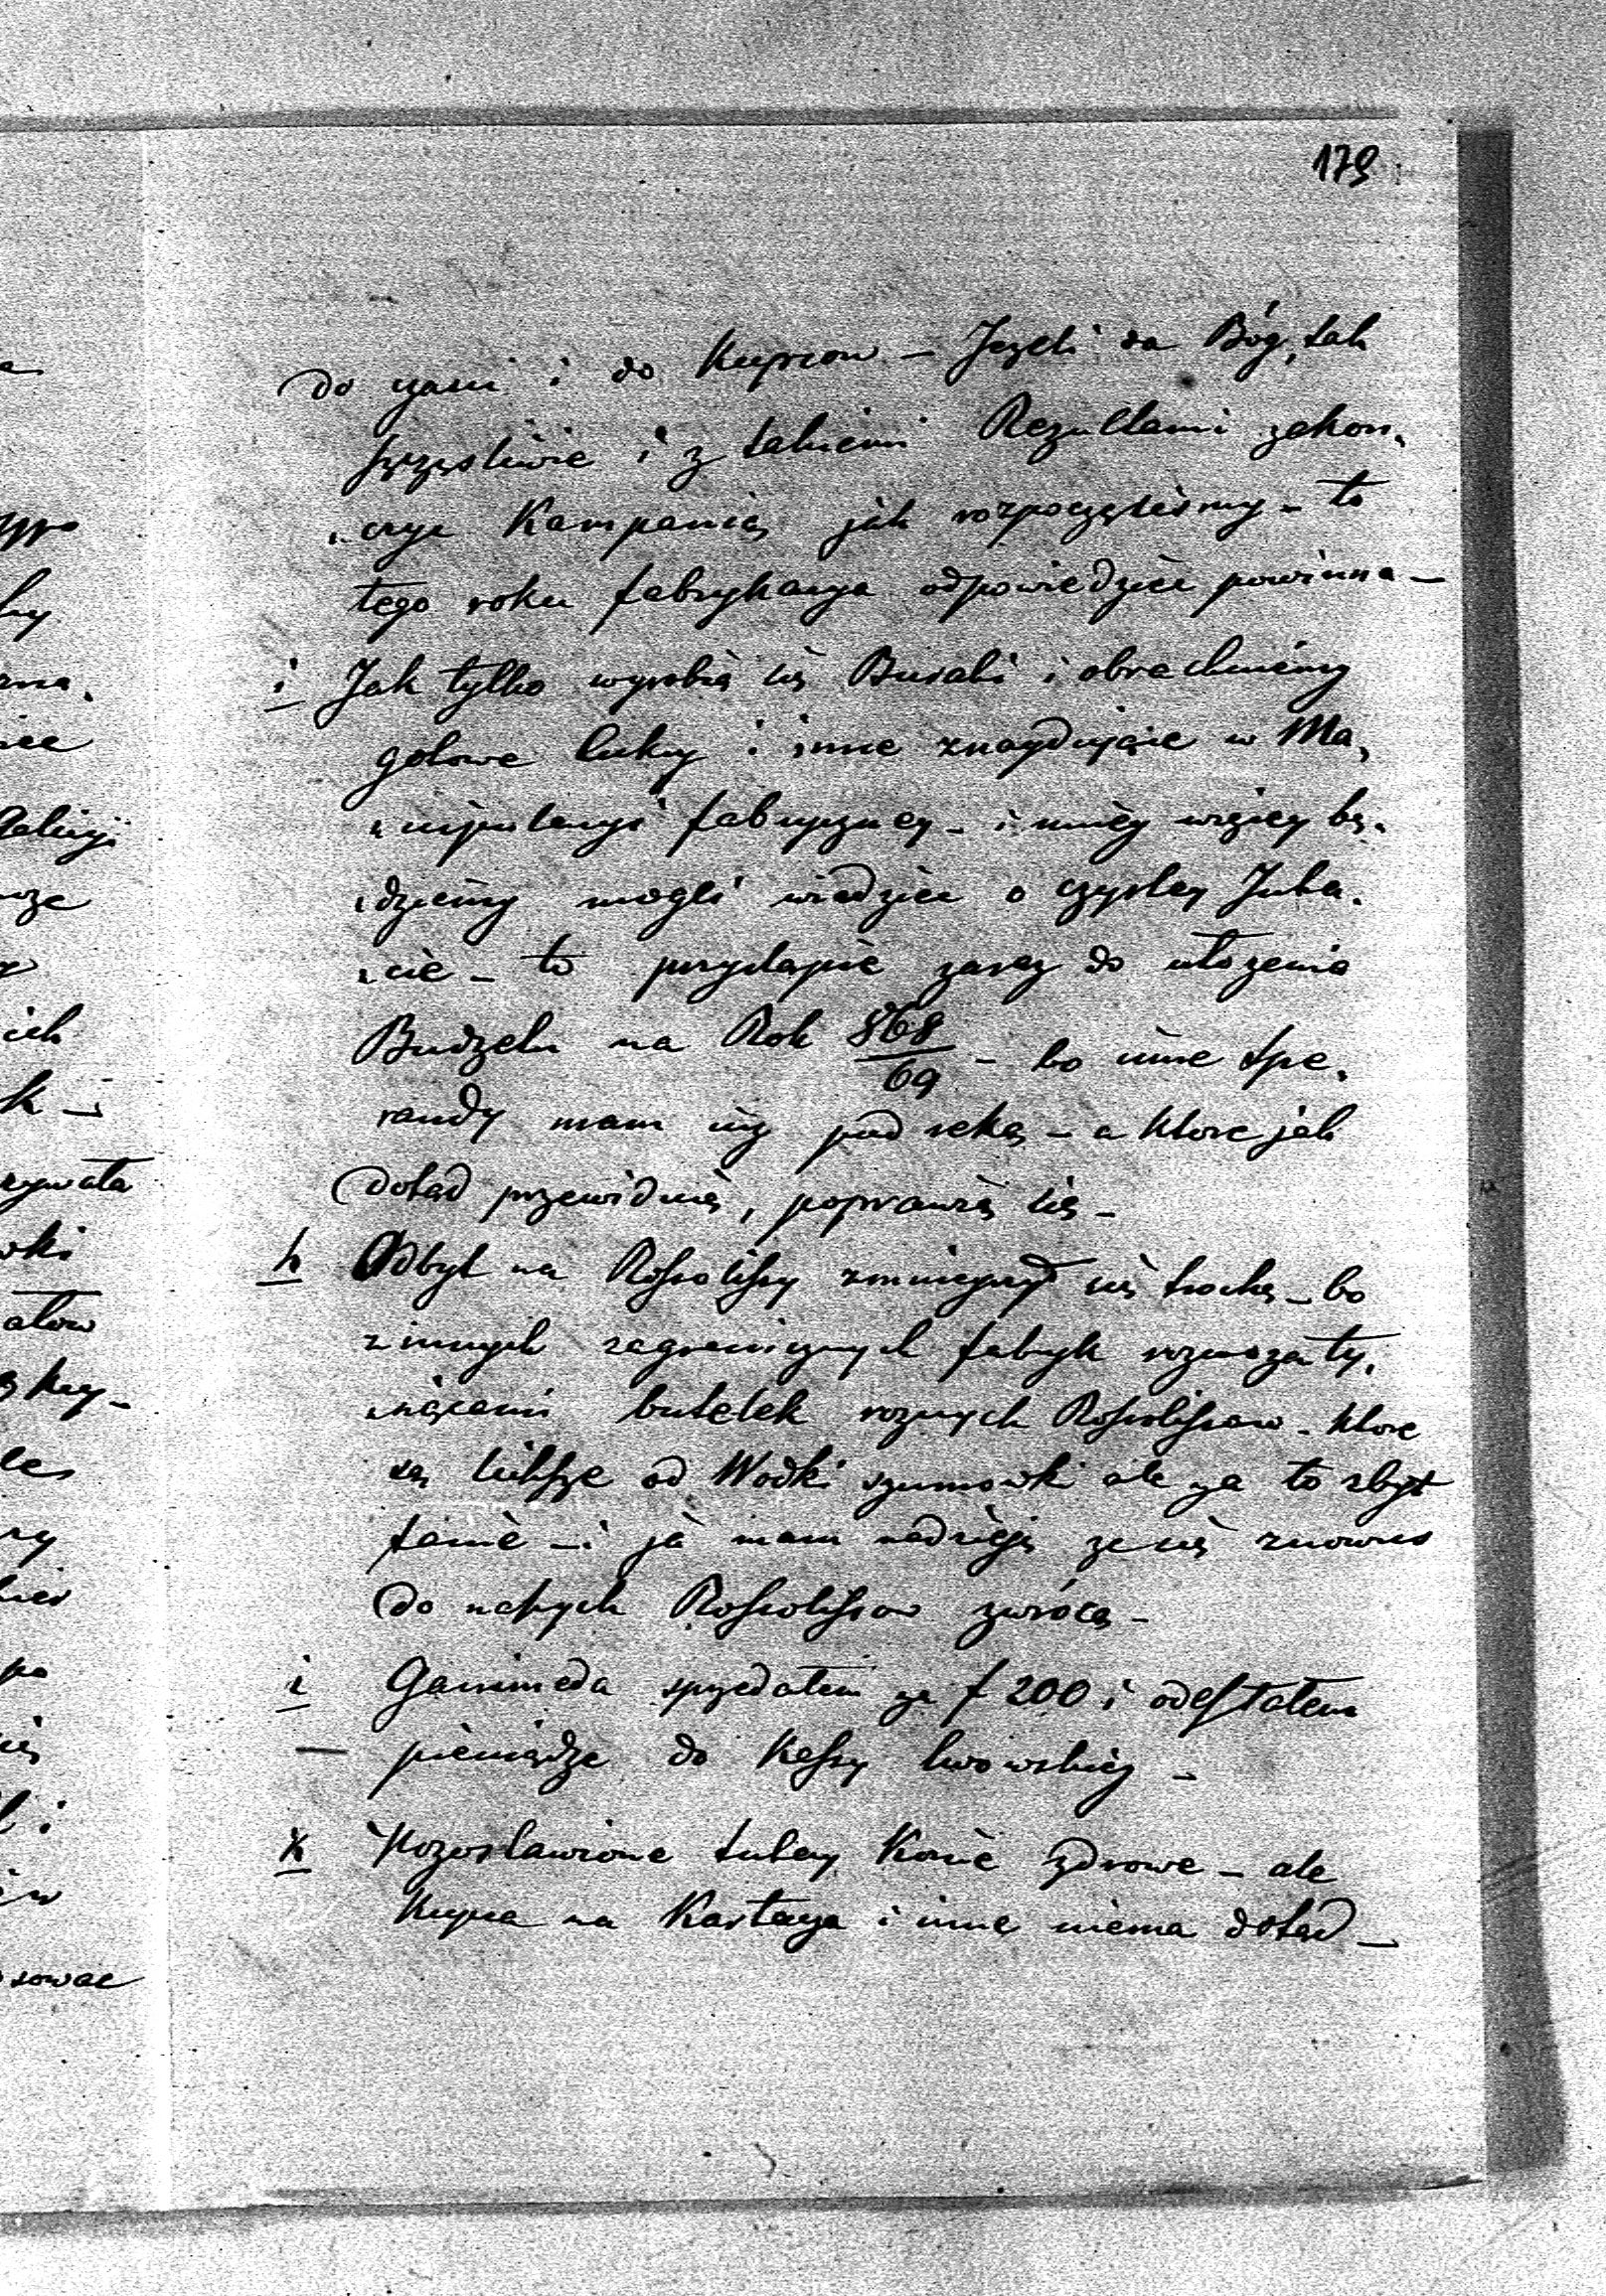 179
do czasu i do Kupcow – Jezeli da Bóg, tak
szczęsliwie i z takiemi Rezultami zakon„
„czyc Kampanią jak rozpoczęliśmy – to
tego roku fabrykacya odpowiedziec powinna –
i Jak tylko wyrobią się Buraki i obrachuiemy
gotowe cukry i inne znaydujące w Ma„
„nipulacyi fabryczney – i mniéy więcey bę„
„dziemy mogli wiedziec o czystey Intra„
„cie – to przystąpię zaraz do ułozenia
Budzetu na Rok 868/69 – bo inne Spe„
randy mam iuz pod ręką – a ktore jak
dotad przewiduię, poprawią się –
h Odbyt na Rosolisy zmnieyszył się trochę – bo
z innych zagranicznych fabryk rozwoza ty„
„siącami butelek roznych Rosolisow – ktore
są lichsze od Wodki szumowki ale za to zbyt
tanie – i ja mam nadzieję ze się znowu
do naszych Rosolisow zwrócą –
i Ganimeda sprzedałem za f 200 i odesłałem
– pieniądze do Kassy lwowskiéj –
k Pozostawione tutay Konie zdrowe – ale
Kupca na Kastaya i inne niema dotąd –